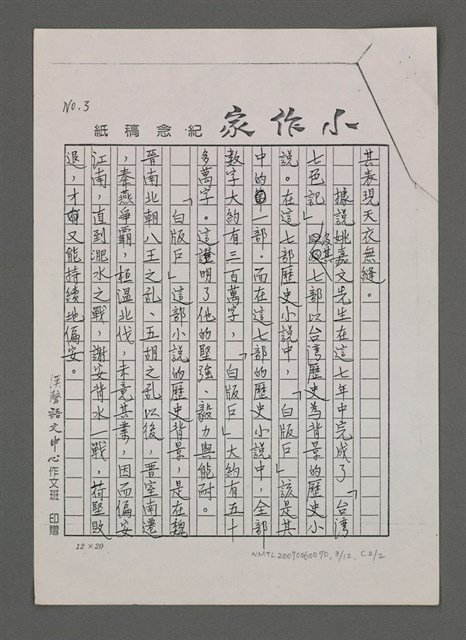 No.3
小作家
紀念稿紙
其表現天衣無縫。
據說姚嘉文先生在這七年中完成了「台灣
七色記」及其七部以台灣歷史為背景的歷史小
說。在這七部歷史小說中,「白版戶」該是其
中的一部。而在這七部的歷史小說中,全部
數字大約有三百萬字,「白版戶」大約有五十
多萬字。這證明了他的堅強、毅力與能耐。
「白版戶」這部小說的歷史背景,是在魏
晉南北朝八王之亂、五胡之亂以後,晋室南遷
,秦燕爭霸,桓溫北伐,未竟其業,因而偏安
江南,直到淝水之戰,謝安背水一戰,苻堅敗
退,才又能持續地偏安。
漢聲語文中心作文班 印贈
12×20
NMTL20090060070, 9/12, C2/2